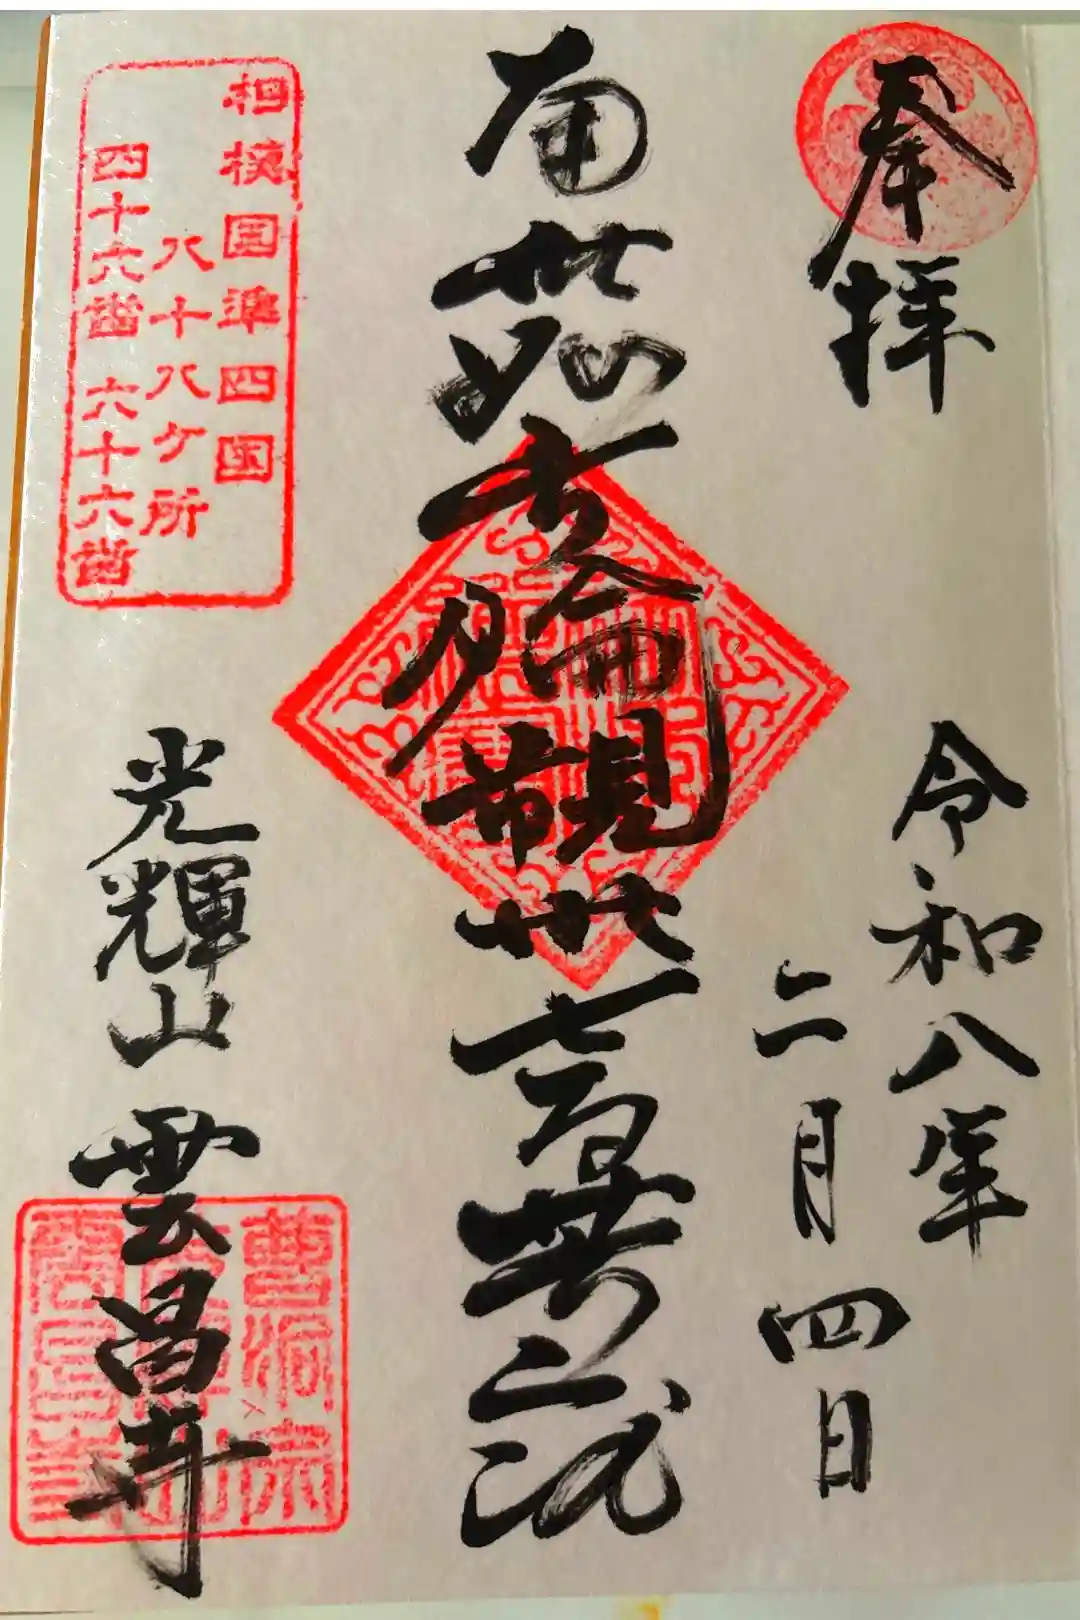 奉拝
令和八年
二月四日
南無如意輪観世音菩薩
相模国準四国
八十八ヶ所
四十六番 六十六番
光輝山 雲昌寺
曹洞宗
光輝山
雲昌寺